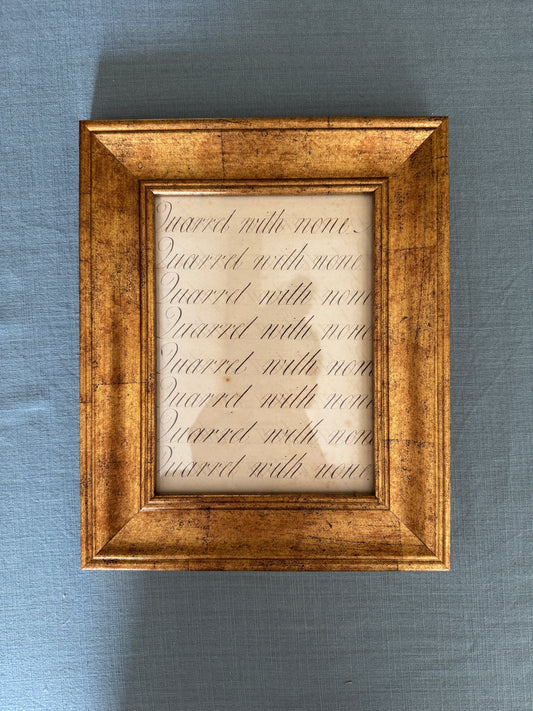 Quarrel with none.
Quarrel with none.
Quarrel with none
Quarrel with none
Quarrel with none
Quarrel with none
Quarrel with none
Quarrel with none.